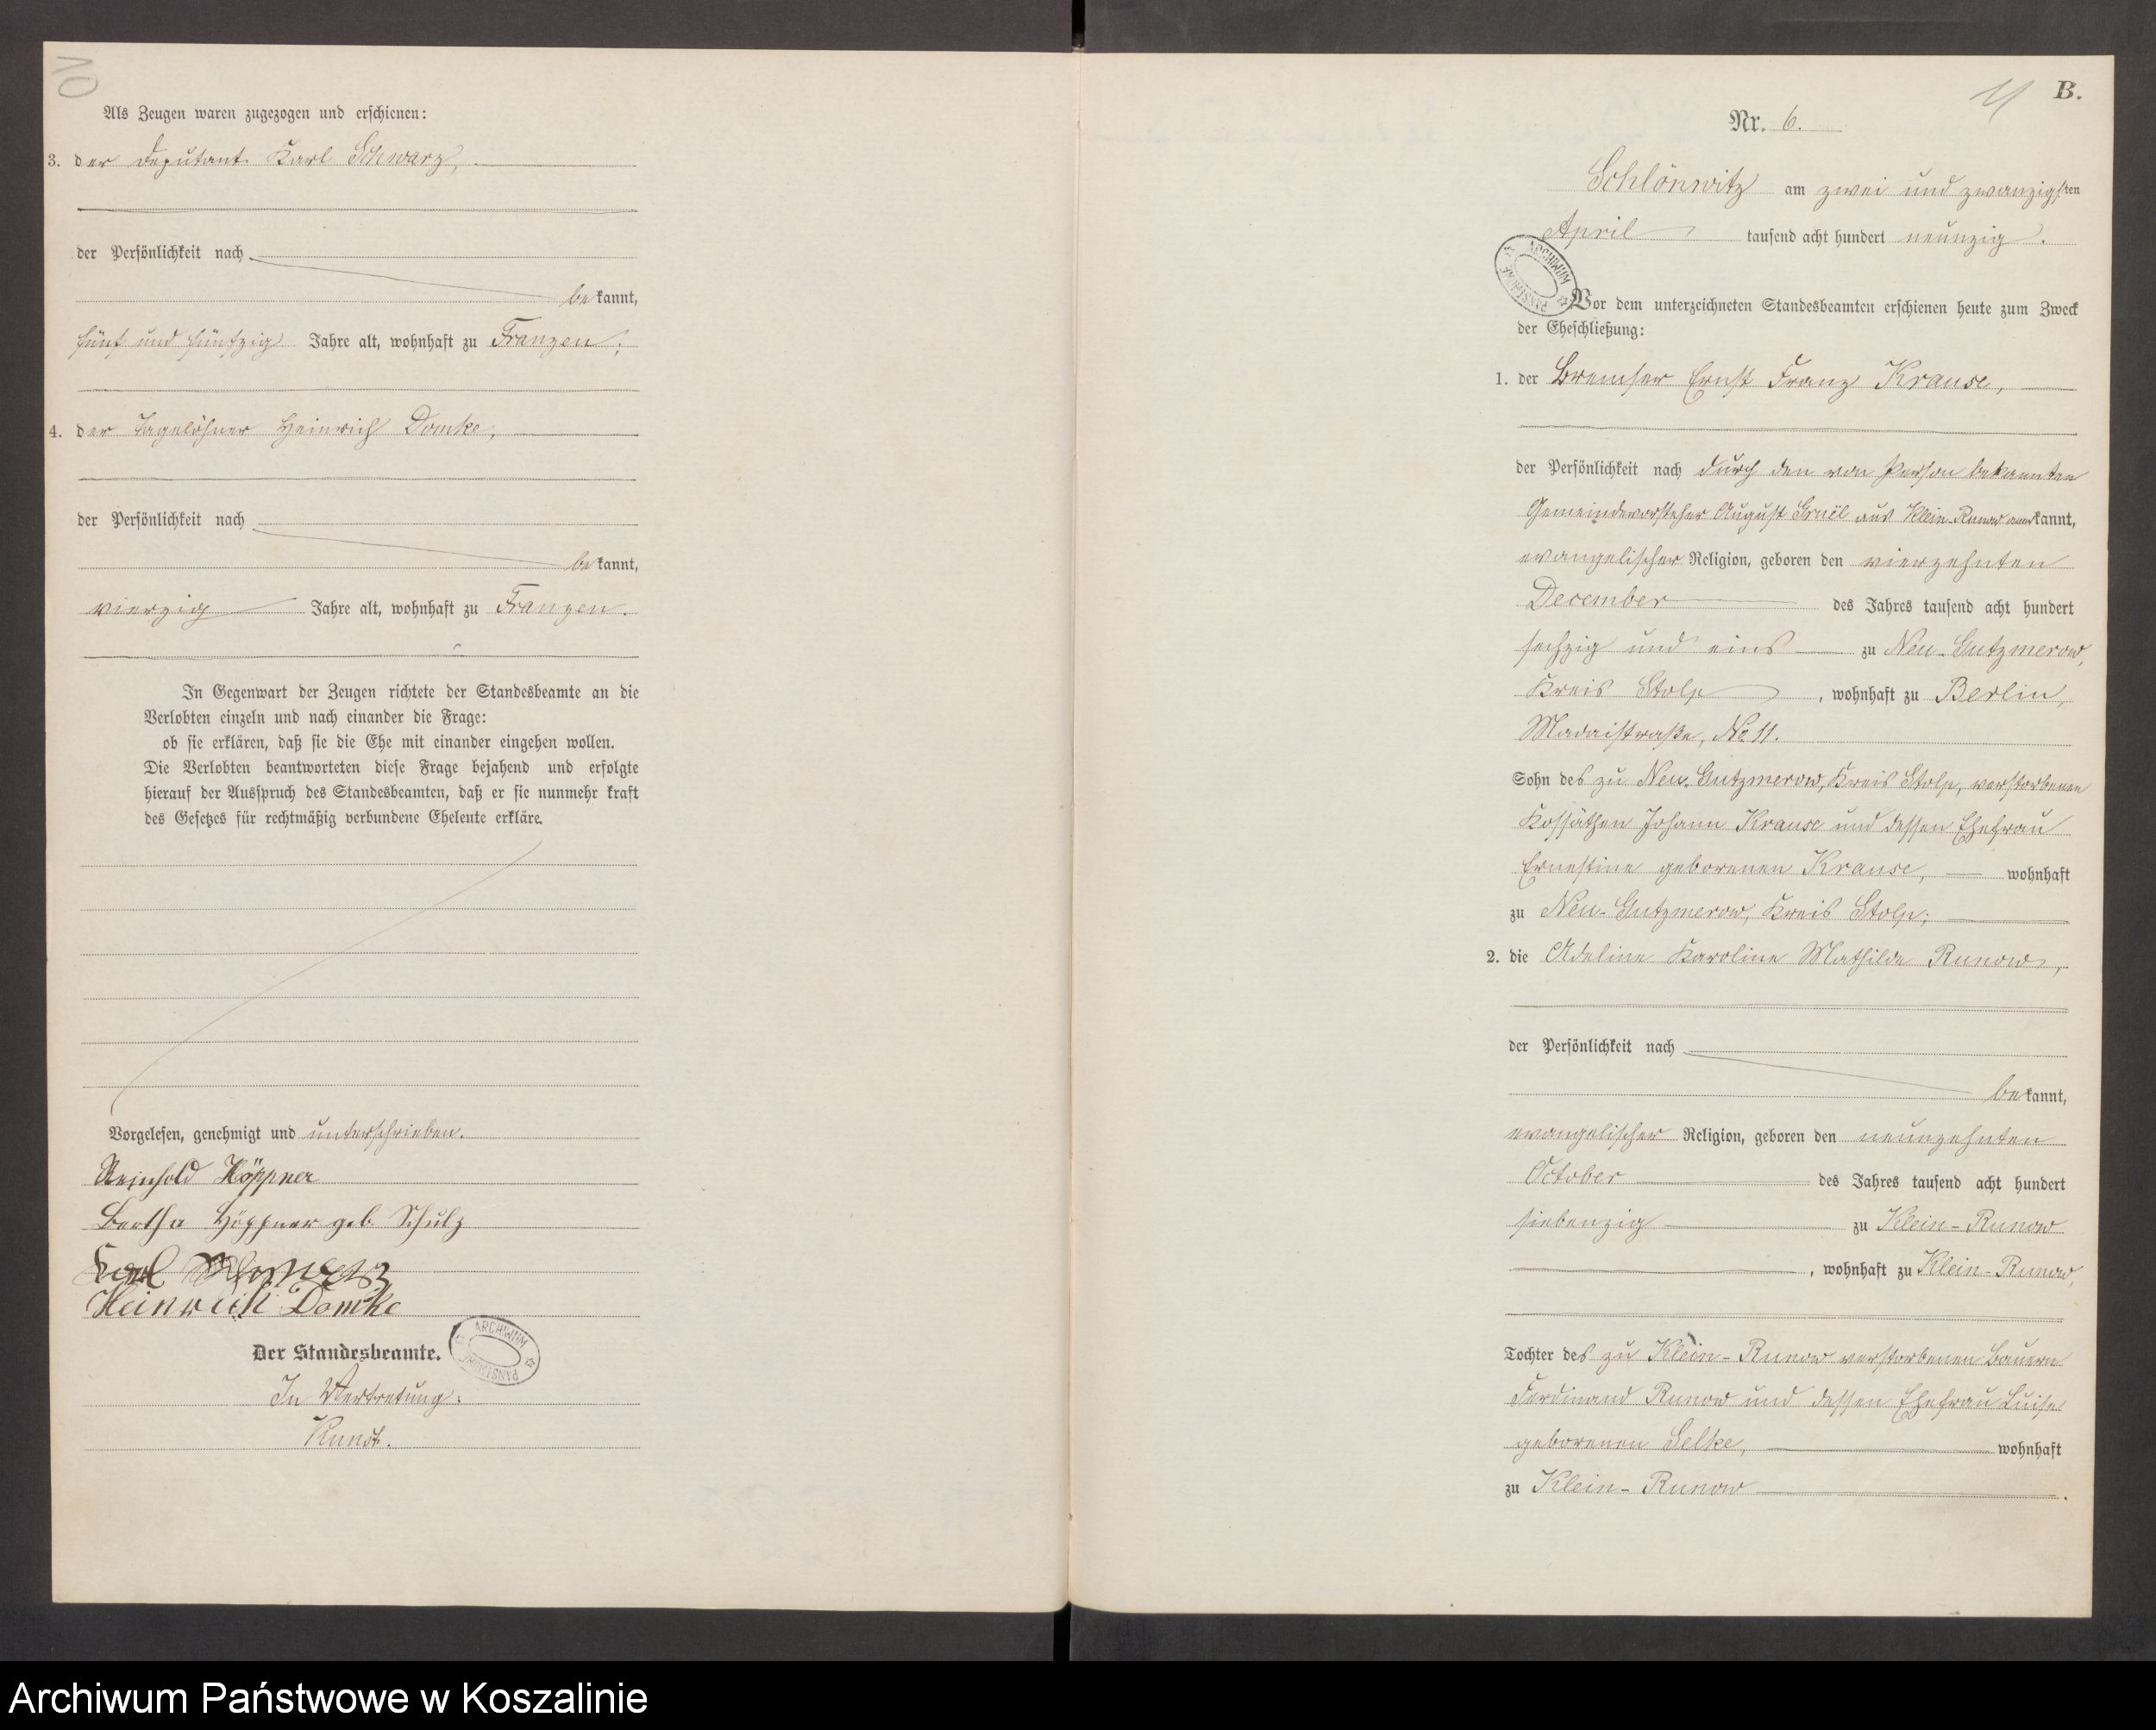 10
Als Zeugen waren zugezogen und erschienen:
3. der Deputant Karl Schwarz,
der Persönlichkeit nach
bekannt,
fünf und fünfzig Jahre alt, wohnhaft zu Franzen;
4. der Tagelöhner Heinrich Domke,
der Persönlichkeit nach
bekannt,
vierzig Jahre alt, wohnhaft zu Franzen.
In Gegenwart der Zeugen richtete der Standesbeamte an die
Verlobten einzeln und nach einander die Frage:
ob sie erklären, daß sie die Ehe mit einander eingehen wollen.
Die Verlobten beantworteten diese Frage bejahend und erfolgte
hierauf der Ausspruch des Standesbeamten, daß er sie nunmehr kraft
des Gesetzes für rechtmäßig verbundene Eheleute erkläre.
Vorgelesen, genehmigt und unterschrieben.
Reinhold Höppner
Bertha Höppner geb. Schulz
Karl Schwarz
Heinrich Domke
Der Standesbeamte.
ARCHIWUM PAŃSTWOWE
In Vertretung.
Kunst.
11 B.
Nr. 6.
Schlönwitz am zwei und zwanzigsten
April tausend acht hundert neunzig.
ARCHIWUM PAŃSTWOWE
Vor dem unterzeichneten Standesbeamten erschienen heute zum Zweck
der Eheschließung:
1. der Bremser Ernst Franz Krause,
der Persönlichkeit nach durch den von Person bekannten
Gemeindevorsteher August Gruël aus Klein-Runow anerkannt,
evangelischer Religion, geboren den vierzehnten
December des Jahres tausend acht hundert
sechzig und eins zu Neu-Gutzmerow,
Kreis Stolp, wohnhaft zu Berlin,
Madaistraße, No 11.
Sohn des zu Neu-Gutzmerow, Kreis Stolp, verstorbenen
Kossäthen Johann Krause und dessen Ehefrau
Ernestine geborenen Krause, wohnhaft
zu Neu-Gutzmerow, Kreis Stolp;
2. die Adeline Karoline Mathilde Runow,
der Persönlichkeit nach
bekannt,
evangelischer Religion, geboren den neunzehnten
October des Jahres tausend acht hundert
siebenzig zu Klein-Runow
, wohnhaft zu Klein-Runow,
Tochter des zu Klein-Runow verstorbenen Bauern
Ferdinand Runow und dessen Ehefrau Luise
geborenen Selke, wohnhaft
zu Klein-Runow.
Archiwum Państwowe w Koszalinie